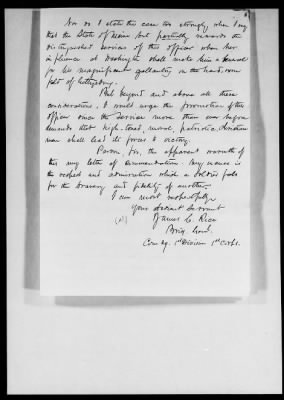 Nor do I state this case too strongly when I say
that the State of Maine but partially rewards the
distinguished services of this officer when her
influence at Washington shall make him a General
for his magnificent gallantry on the hard, won
field of Gettysburg.
But beyond and above all these
considerations, I would urge the promotion of this
officer since the service more than ever before
demands that high-toned, moral, patriotic, Christian
men shall lead its forces to victory.
Pardon, Sir, the apparent warmth of
this my letter of commendation. My excuse is
the respect and admiration which a soldier feels
for the bravery and fidelity of another.
I am most respectfully
Your obedient Servant
James C. Rice
Brig. Genl.
Com'dg. 1st Division 1st Corps.